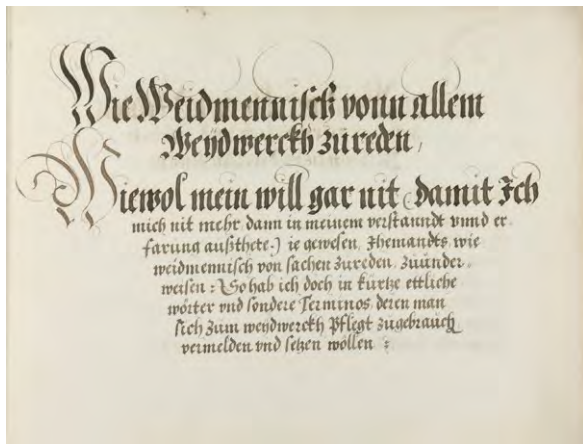 Wie Weidmennisch vonn allem
Weÿdwerckh zureden,
Wiewol mein will gar nit (damit Ich
mich nit mehr dann in meinem verstanndt vnnd er¬
farung außthete.) ie gewesen, Jhemandts, wie
weidmennisch von sachen zureden, zuunder¬
weisen: So hab ich doch in kurtze ettliche
wörter vnd sondere Terminos, deren man
sich zum weydwerckh Pflegt zugebrauch
vermelden vnd setzen wöllen: